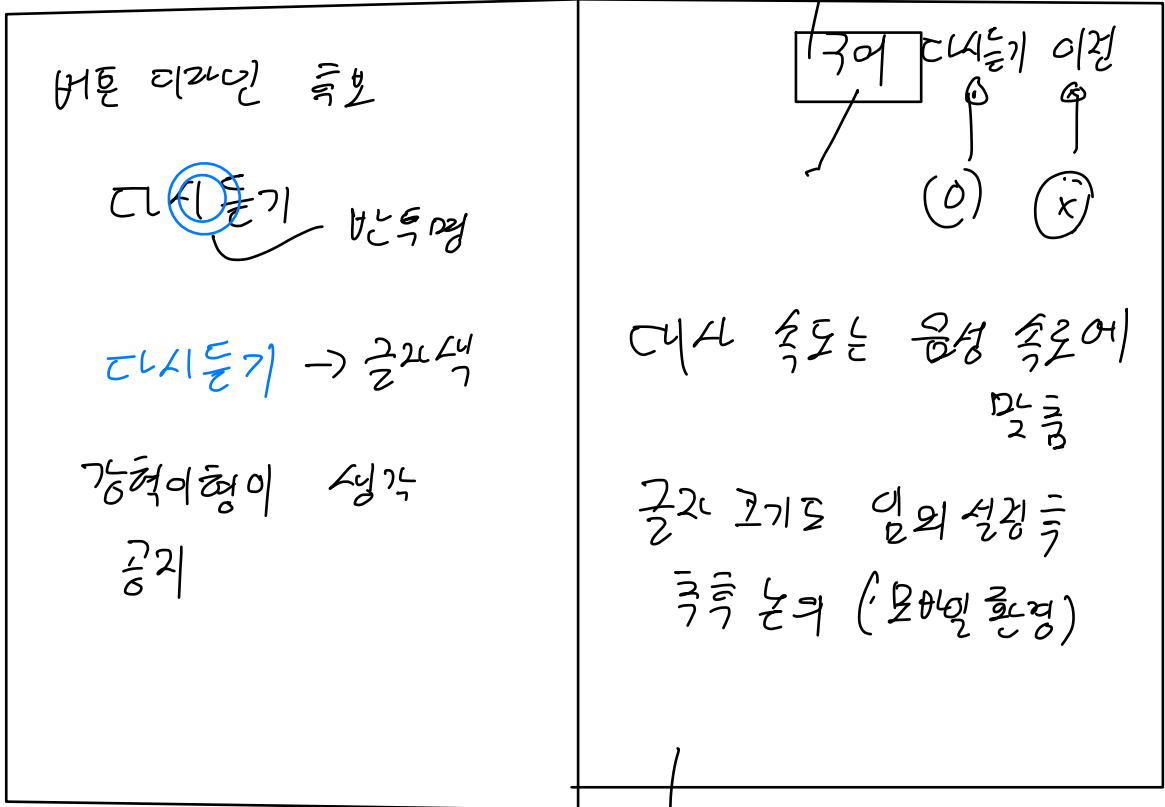 버튼 디자인 후보
다시듣기
반투명
다시듣기 → 글자색
강혁이형이 생각
공지
국어 다시듣기 이전
(O) X
대사 속도는 음성 속도에
맞춤
글자 크기도 임의 설정 후
추후 논의 (모바일 환경)